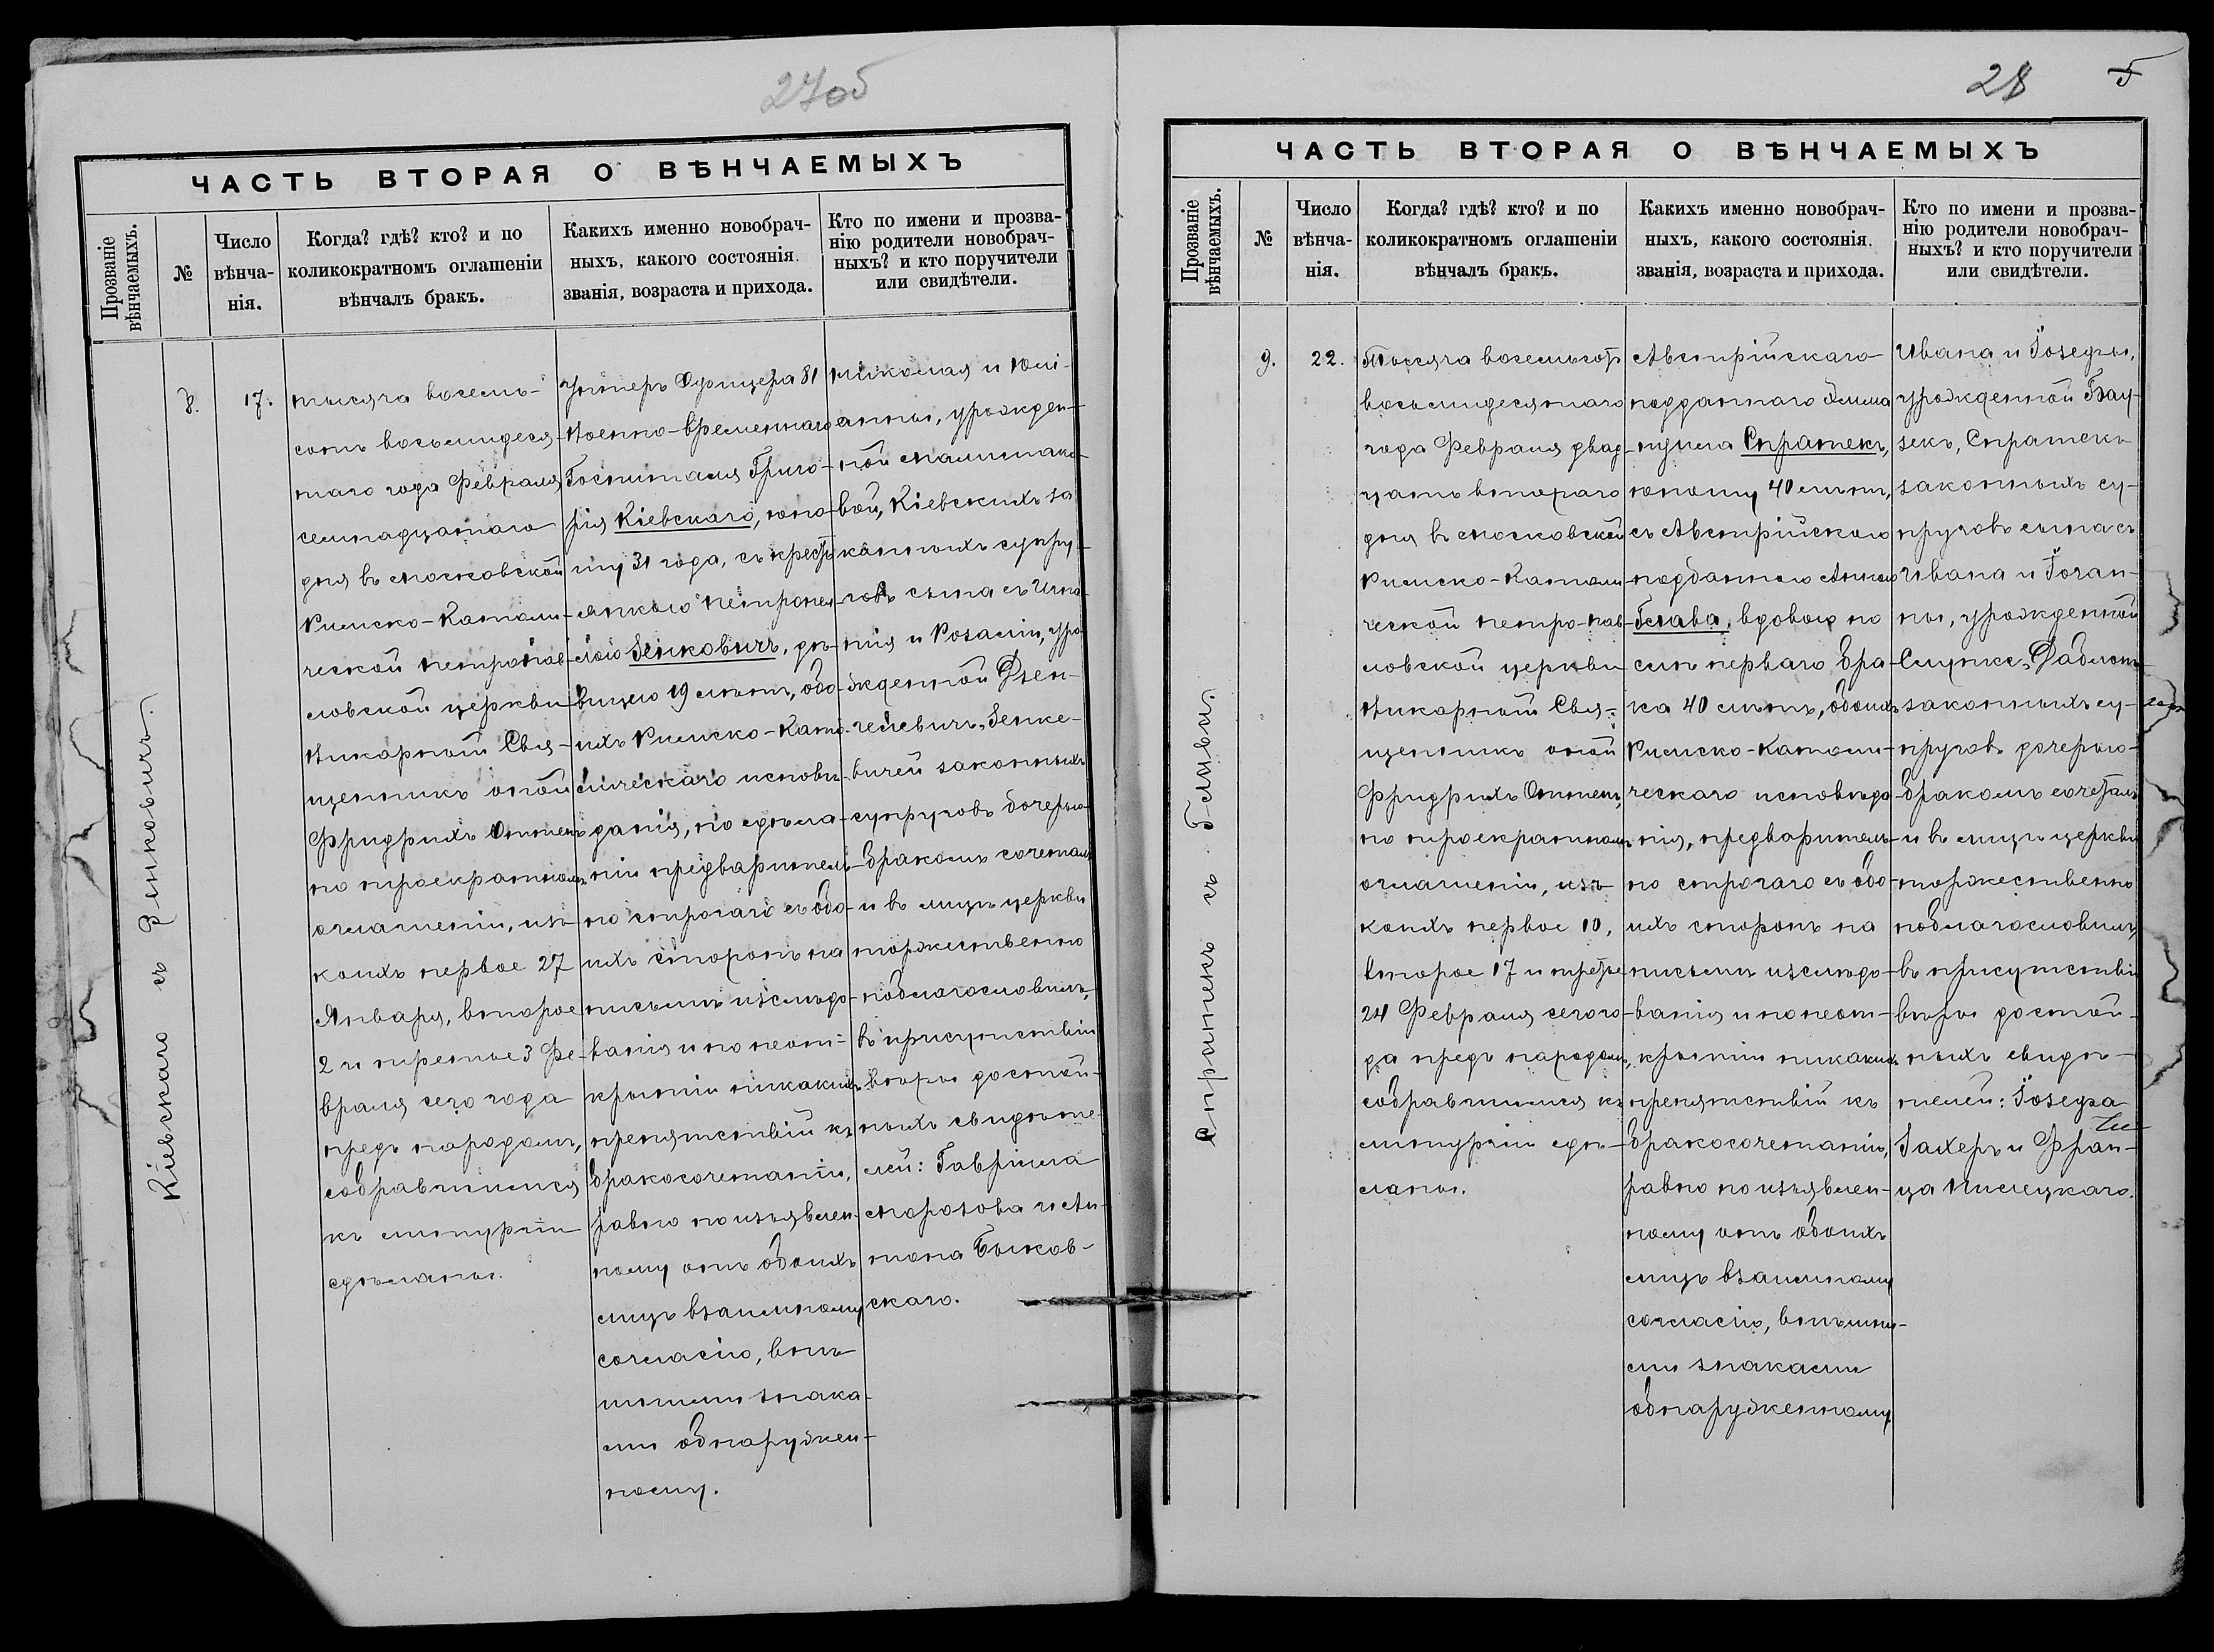 27об
ЧАСТЬ ВТОРАЯ О ВѢНЧАЕМЫХЪ
Прозваніе
вѣнчаемыхъ.
№
Число
вѣнча-
нія.
Когда? гдѣ? кто? и по
коликократномъ оглашеніи
вѣнчалъ бракъ.
Какихъ именно новобрач-
ныхъ, какого состоянія.
званія, возраста и прихода.
Кто по имени и прозва-
нію родители новобрач-
ныхъ? и кто поручители
или свидѣтели.
Кіевскаго съ Зенковичъ.
8.
17.
тысяча восемь-
сотъ восьмидеся-
таго года Февраля
семнадцатаго
дня въ Московской
Римско-Католи-
ческой Петропав-
ловской церкви
Викарный Свя-
щенникъ оной
Фридрихъ Оттенъ
по троекратномъ
оглашеніи, изъ
коихъ первое 27
Января, второе
2 и третье 3 Фе-
враля сего года
предъ народомъ,
собравшимся
къ литургіи
сдѣланы.
Унтеръ Офицера 81
Военно-Временнаго
Госпиталя Григо-
рія Кіевскаго, юно-
шу 31 года, съ крестъ-
янкою Петронел-
лою Зенковичъ, дѣ-
вицею 19 лѣтъ, обо-
ихъ Римско-Като-
лическаго исповѣ-
данія, по сдѣла-
ніи предваритель-
но строгаго съ обо-
ихъ сторонъ на
письмѣ изслѣдо-
ванія и по неот-
крытіи никакихъ
препятствій къ
бракосочетанію,
равно по изъявлен-
ному отъ обоихъ
лицъ взаимному
согласію, внѣ-
шними знака-
ми обнаружен-
ному.
Николая и Юлі-
анны, урожден-
ной Малишано-
вой, Кіевскихъ за-
конныхъ супру-
говъ сына съ Игна-
тія и Розаліи, уро-
жденной Дзен-
челевичъ, Зенке-
вичей законныхъ
супруговъ дочерью
бракомъ сочеталъ
и въ лицѣ церкви
торжественно
поблагословилъ,
въ присутствіи
вѣры достой-
ныхъ свидѣте-
лей: Гавріила
Морозова и Ан-
тона Быков-
скаго.
28
5
ЧАСТЬ ВТОРАЯ О ВѢНЧАЕМЫХЪ
Прозваніе
вѣнчаемыхъ.
№
Число
вѣнча-
нія.
Когда? гдѣ? кто? и по
коликократномъ оглашеніи
вѣнчалъ бракъ.
Какихъ именно новобрач-
ныхъ, какого состоянія.
званія, возраста и прихода.
Кто по имени и прозва-
нію родители новобрач-
ныхъ? и кто поручители
или свидѣтели.
Спратекъ съ Глава.
9.
22.
Тысяча восемьсотъ
восьмидесятаго
года Февраля двад-
цать втораго
дня въ Московской
Римско-Католи-
ческой Петро-Пав-
ловской церкви
Викарный Свя-
щенникъ оной
Фридрихъ Оттенъ,
по троекратномъ
оглашеніи, изъ
коихъ первое 10,
второе 17 и третье
24 Февраля сего го-
да предъ народомъ,
собравшимся къ
литургіи сдѣ-
ланы.
Австрійскаго
подданнаго
Спратекъ,
юношу 40 лѣтъ,
съ Австрійскою
подданною Анною
Глава, вдовою по
слѣ перваго бра-
ка 40 лѣтъ, обоихъ
Римско-Католи-
ческаго исповѣда-
нія, предваритель-
но строгаго съ обо-
ихъ сторонъ на
письмѣ изслѣдо-
ванія и по неот-
крытіи никакихъ
препятствій къ
бракосочетанію,
равно по изъявлен-
ному отъ обоихъ
лицъ взаимному
согласію, внѣшни-
ми знаками
обнаруженному
Ивана и Іозефы,
урожденной Вау-
зекъ, Спратекъ
законныхъ су-
пруговъ сына съ
Ивана и Іоган-
ны, урожденной
законныхъ су-
пруговъ дочерью
бракомъ сочеталъ
и въ лицѣ церкви
торжественно
поблагословилъ,
въ присутствіи
вѣры достой-
ныхъ свидѣ-
телей: Іозефа
Гахеръ и Фран-
ца Пилецкаго.